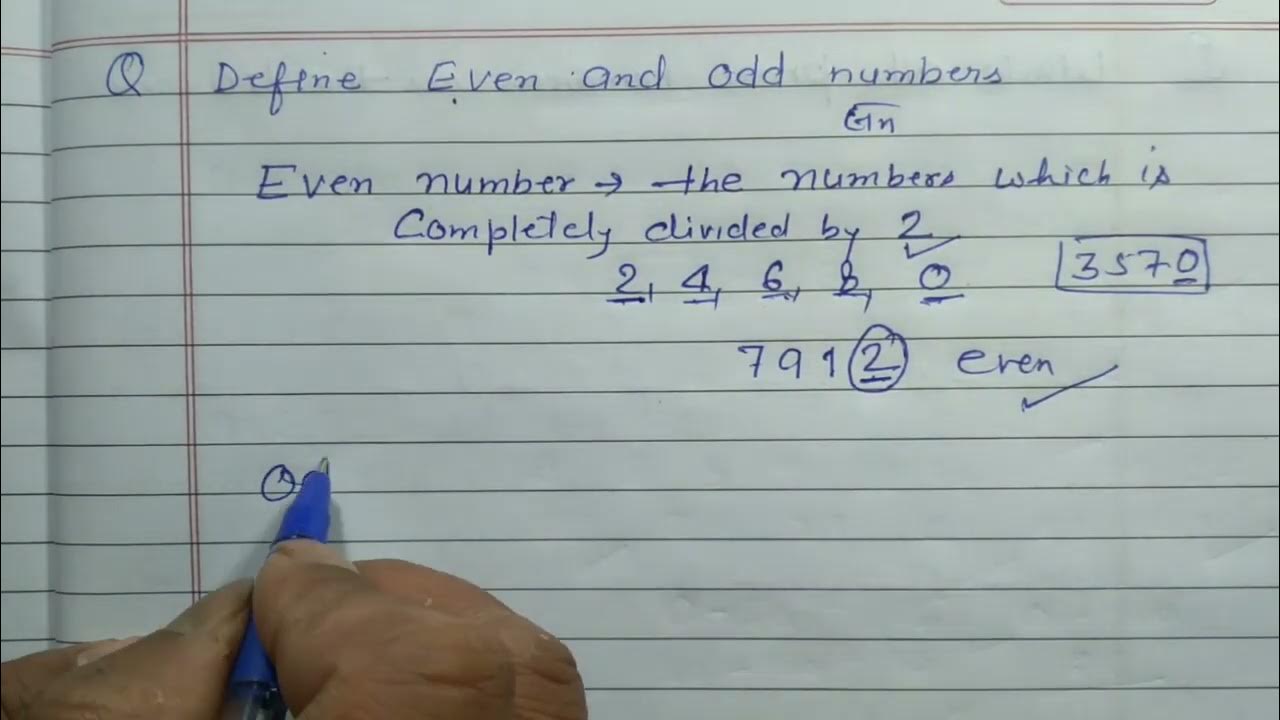 Q Define Even and odd numbers
Even number → the numbers which is
Completely divided by 2
2, 4, 6, 8, 0
3570
7912 even